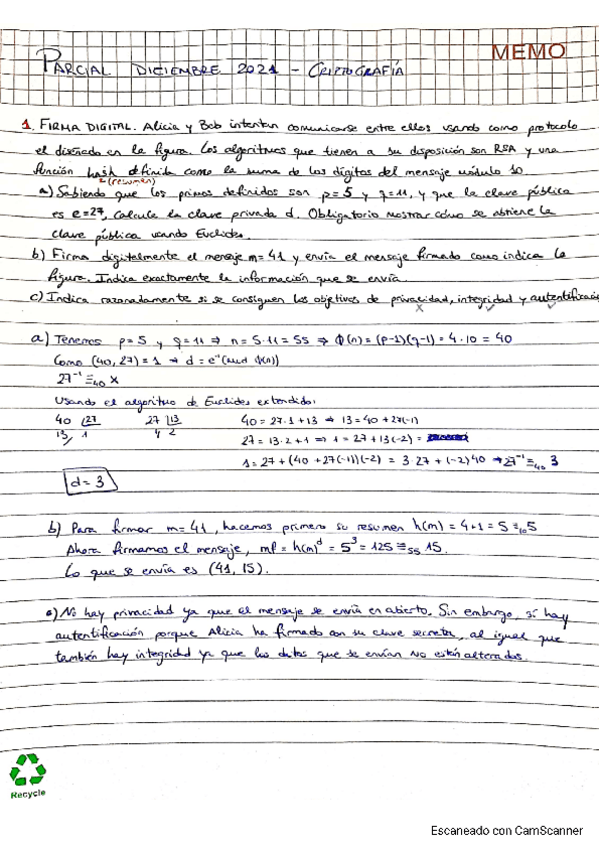 MEMO
PARCIAL DICIEMBRE 2021 - CRIPTOGRAFÍA
1. FIRMA DIGITAL. Alicia y Bob intentan comunicarse entre ellos usando como protocolo
el diseñado en la figura. Los algoritmos que tienen a su disposición son RSA y una
función hash definida como la suma de los dígitos del mensaje módulo 10.
(resumen)
a) Sabiendo que los primos definidos son p=5 y q=11, y que la clave pública
es e=27, calcula la clave privada d. Obligatorio mostrar cómo se obtiene la
clave pública usando Euclides.
b) Firma digitalmente el mensaje m=41 y envía el mensaje firmado como indica la
figura. Indica exactamente la información que se envía.
c) Indica razonadamente si se consiguen los objetivos de privacidad, integridad y autentificación
a) Tenemos p=5 y q=11 ⇒ n=5·11=55 ⇒ Φ(n)=(p-1)(q-1)=4·10=40
Como (40,27)=1 ⇒ d=e⁻¹(mod Φ(n))
27⁻¹ ≡₄₀ x
Usando el algoritmo de Euclides extendido:
40 27 27 13 40=27·1+13 ⇒ 13=40+27(-1)
13 1 1 2 27=13·2+1 ⇒ 1=27+13(-2)=
1=27+(40+27(-1))(-2)=3·27+(-2)40 ⇒ 27⁻¹≡₄₀ 3
d=3
b) Para firmar m=41, hacemos primero su resumen h(m)=4+1=5≡₁₀5
Ahora firmamos el mensaje, mf=h(m)ᵈ=5³=125≡₅₅15.
Lo que se envía es (41,15).
c) No hay privacidad ya que el mensaje se envía en abierto. Sin embargo, sí hay
autentificación porque Alicia ha firmado con su clave secreta, al igual que
también hay integridad ya que los datos que se envían no están alterados.
Recycle
Escaneado con CamScanner